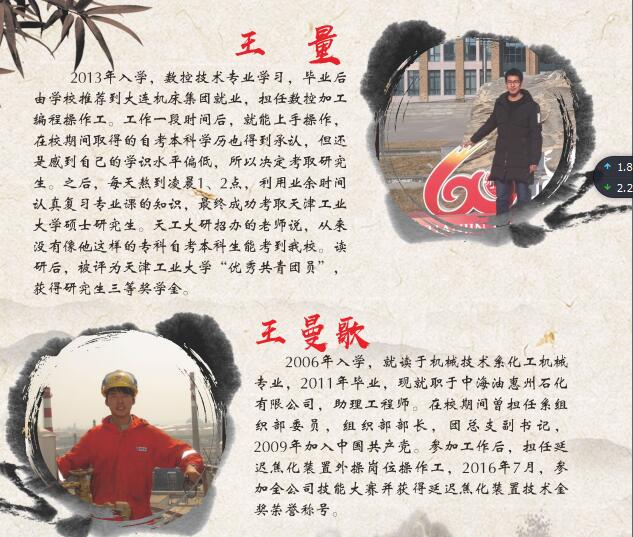 王 量
2013年入学，数控技术专业学习，毕业后
由学校推荐到大连机床集团就业，担任数控加工
编程操作工。工作一段时间后，就能上手操作，
在校期间取得的自考本科学历也得到承认，但还
是感到自己的学识水平偏低，所以决定考取研究
生。之后，每天熬到凌晨1、2点，利用业余时间
认真复习专业课的知识，最终成功考取天津工业
大学硕士研究生。天工大研招办的老师说，从来
没有像他这样的专科自考本科生能考到我校。读
研后，被评为天津工业大学“优秀共青团员”，
获得研究生三等奖学金。
1.8
2.2
王曼歌
2006年入学，就读于机械技术系化工机械
专业，2011年毕业，现就职于中海油惠州石化
有限公司，助理工程师。在校期间曾担任系组
织部委员，组织部部长，团总支副书记，
2009年加入中国共产党。参加工作后，担任延
迟焦化装置外操岗位操作工，2016年7月，参
加全公司技能大赛并获得延迟焦化装置技术金
奖荣誉称号。